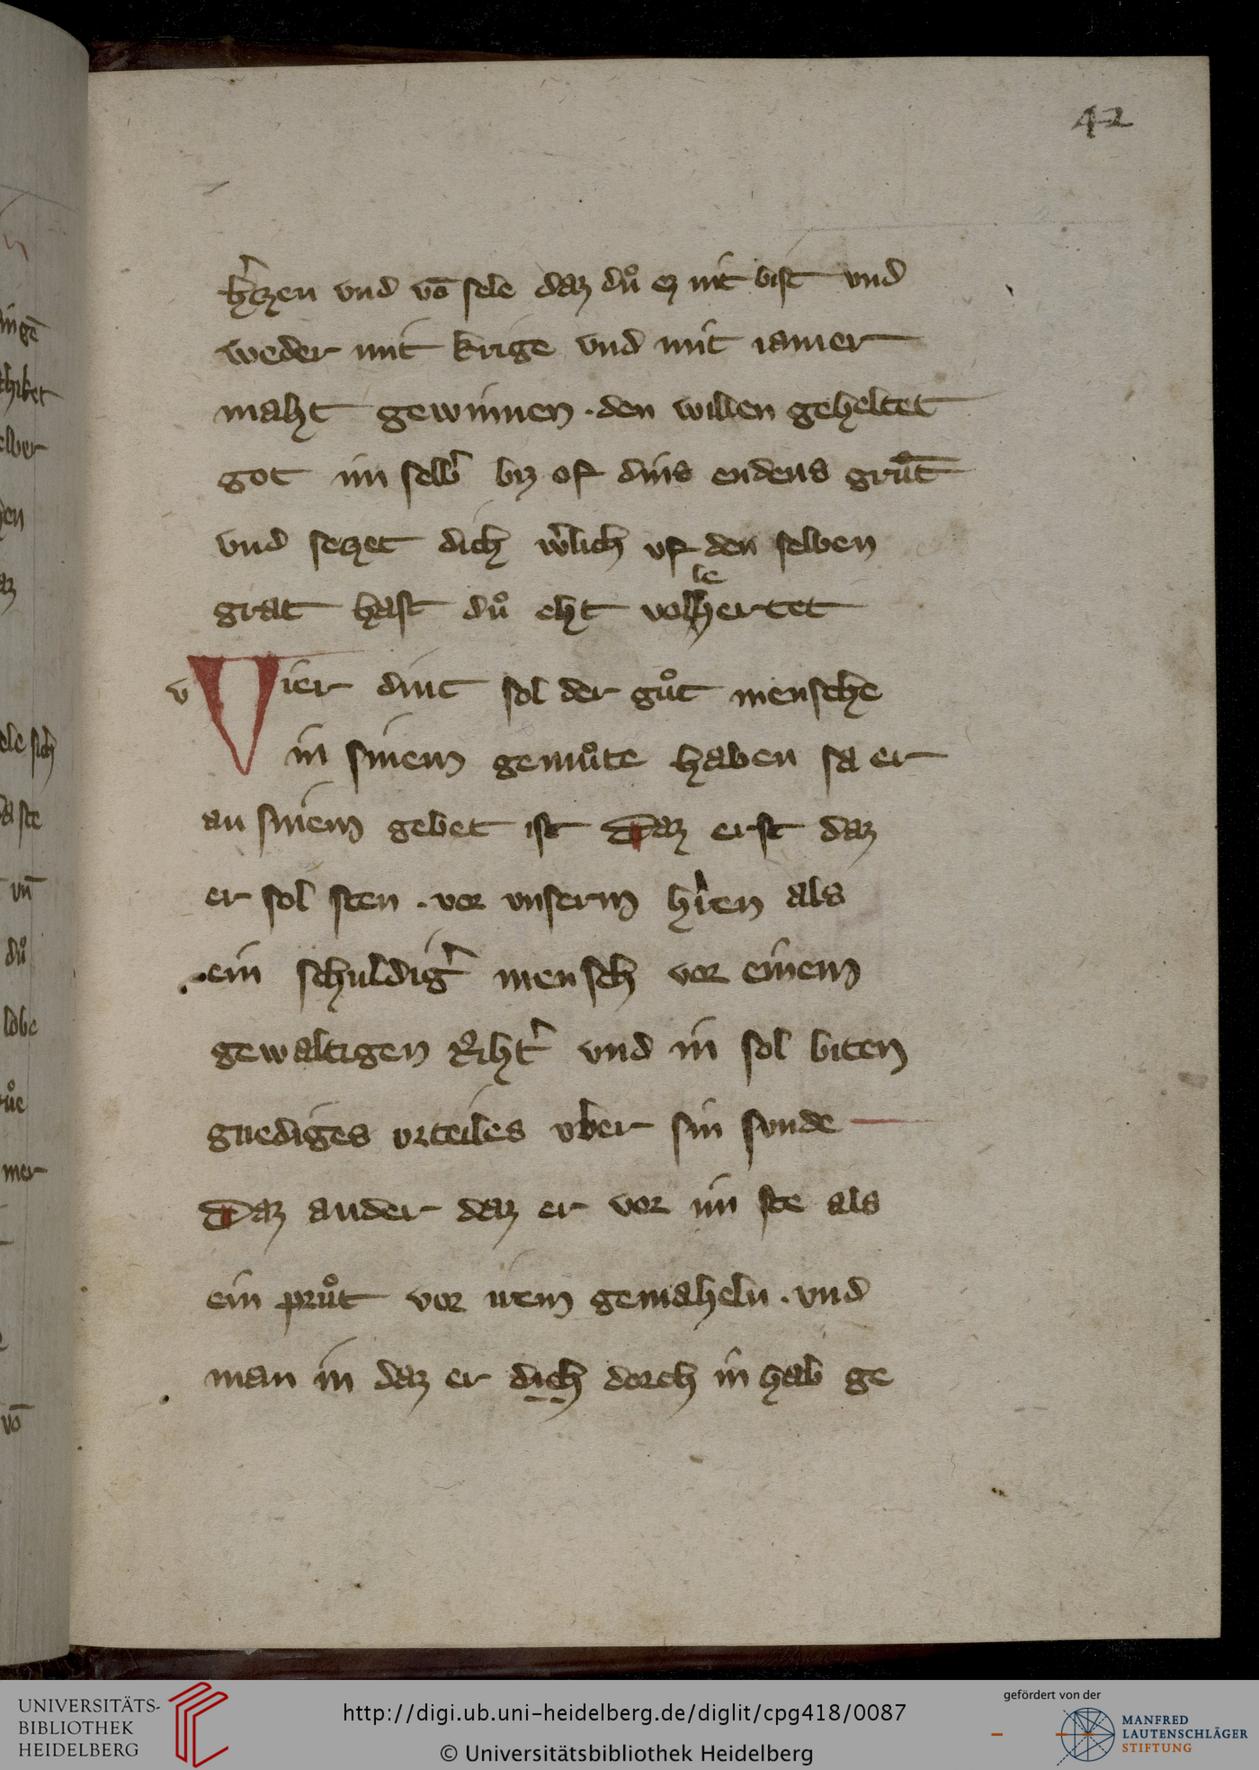 42
h̾zen vnd vō sele daz dů ez nit bist vnd
weder mit krige vnd mit iamer
maht gewinnen · den willen geheltet
got im selb̾ biz of dins endens grůt̄
vnd sezet dich w̾lich vf den selben
grat hast dů eht vollehertet
Vier dinc sol der gůt mensche
in sinem gemůte haben sa er
an sinem gebet ist Daz erst daz
er sol sten · vor vnserm h̾ren als
ein schuldig̾ mensch vor einem
gewaltigen riht̾ vnd in sol biten
gnediges vrteiles vber sin sunde
Daz ander daz er vor im ste als
ein průt vor irem gemaheln · vnd
man in daz er dich dorch in hab ge
UNIVERSITÄTS-
BIBLIOTHEK
HEIDELBERG
http://digi.ub.uni-heidelberg.de/diglit/cpg418/0087
© Universitätsbibliothek Heidelberg
gefördert von der
MANFRED
LAUTENSCHLÄGER
STIFTUNG